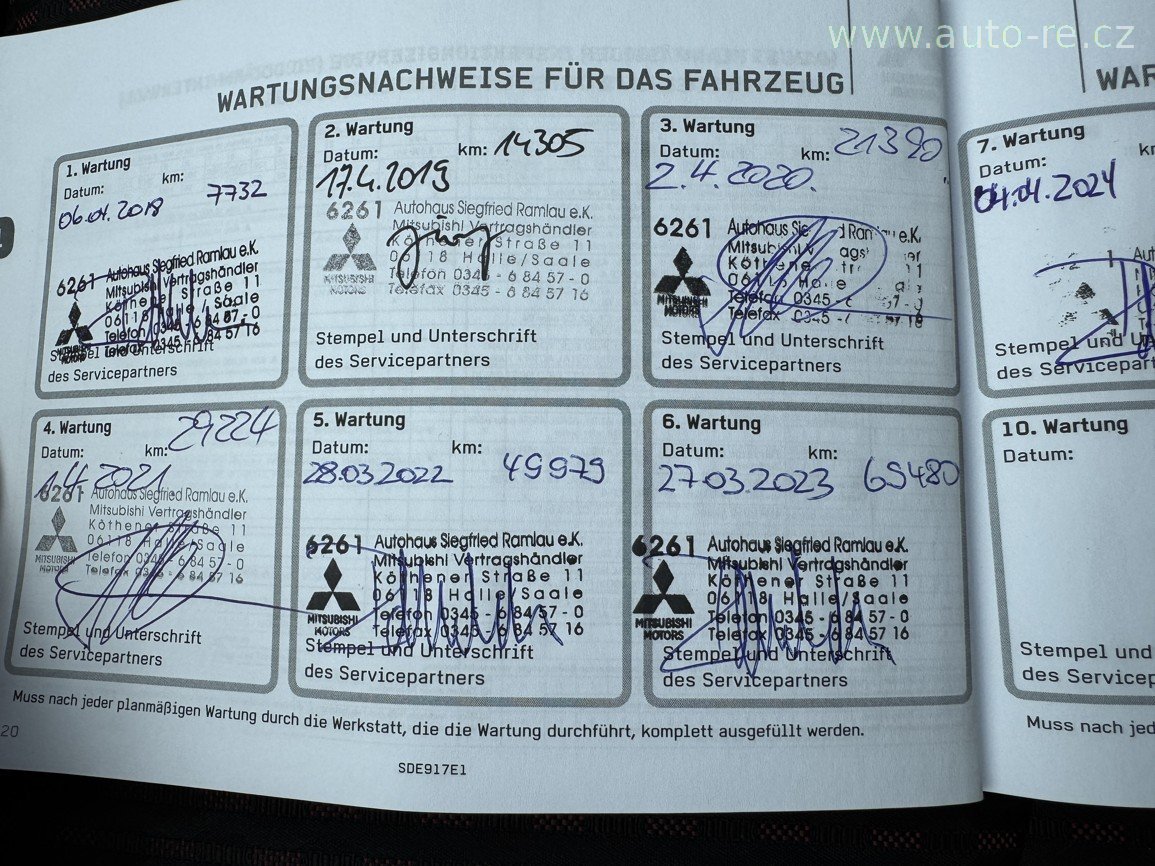 www.auto-re.cz
WARTUNGSNACHWEISE FÜR DAS FAHRZEUG
1. Wartung
Datum: km:
06.04.2018 7732
6261 Autohaus Siegfried Ramlau e.K.
Mitsubishi Vertragshändler
Köthener Straße 11
06118 Halle/Saale
Telefon 0345 - 6 84 57 - 0
Telefax 0345 - 6 84 57 16
MITSUBISHI
MOTORS
Stempel und Unterschrift
des Servicepartners
2. Wartung
Datum: km: 14305
17.4.2019
6261 Autohaus Siegfried Ramlau e.K.
Mitsubishi Vertragshändler
Köthener Straße 11
06118 Halle/Saale
Telefon 0345 - 6 84 57 - 0
Telefax 0345 - 6 84 57 16
MITSUBISHI
MOTORS
Stempel und Unterschrift
des Servicepartners
3. Wartung
Datum: km: 21390
2.4.2020.
6261 Autohaus Sie Ramlau e.K.
Mitsubishi
Köthener 11
06118 Halle
Telefon 0345 -
Telefax 0345 -
MITSUBISHI
MOTORS
Stempel und Unterschrift
des Servicepartners
4. Wartung
Datum: km: 29224
1.4.2021
6261 Autohaus Siegfried Ramlau e.K.
Mitsubishi Vertragshändler
Köthener Straße 11
06118 Halle/Saale
Telefon 0345 - 6 84 57 - 0
Telefax 0345 - 6 84 57 16
MITSUBISHI
MOTORS
Stempel und Unterschrift
des Servicepartners
5. Wartung
Datum: km:
28.03.2022 49979
6261 Autohaus Siegfried Ramlau e.K.
Mitsubishi Vertragshändler
Köthener Straße 11
06118 Halle/Saale
Telefon 0345 - 6 84 57 - 0
Telefax 0345 - 6 84 57 16
MITSUBISHI
MOTORS
Stempel und Unterschrift
des Servicepartners
6. Wartung
Datum: km:
27.03.2023 69480
6261 Autohaus Siegfried Ramlau e.K.
Mitsubishi Vertragshändler
Köthener Straße 11
06118 Halle/Saale
Telefon 0345 - 6 84 57 - 0
Telefax 0345 - 6 84 57 16
MITSUBISHI
MOTORS
Stempel und Unterschrift
des Servicepartners
Muss nach jeder planmäßigen Wartung durch die Werkstatt, die die Wartung durchführt, komplett ausgefüllt werden.
20
SDE917E1
WAR
7. Wartung
Datum:
04.04.2024
Stempel und
des Servicepart
10. Wartung
Datum:
Stempel und
des Servicep
Muss nach jed